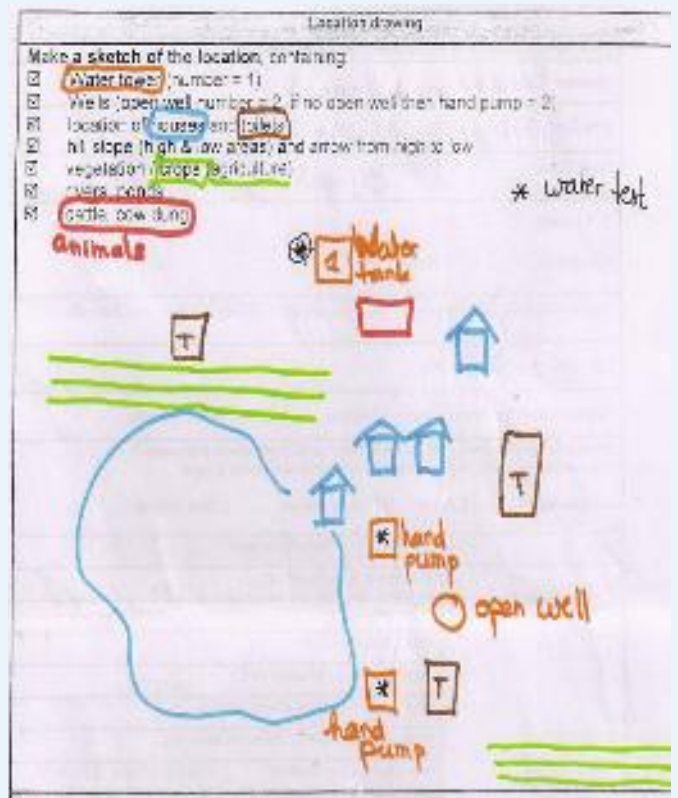 Location drawing
Make a sketch of the location, containing
Water tower (number = 1)
Wells (open well number = 2, if no open well then hand pump = 2)
location of houses and toilets
hill slope (high & low areas) and arrow from high to low
vegetation / crops (agriculture)
rivers, ponds
cattle, cow dung
* water test
animals
* 1 Water
tank
T
T
* hand
pump
open well
* T
hand
pump